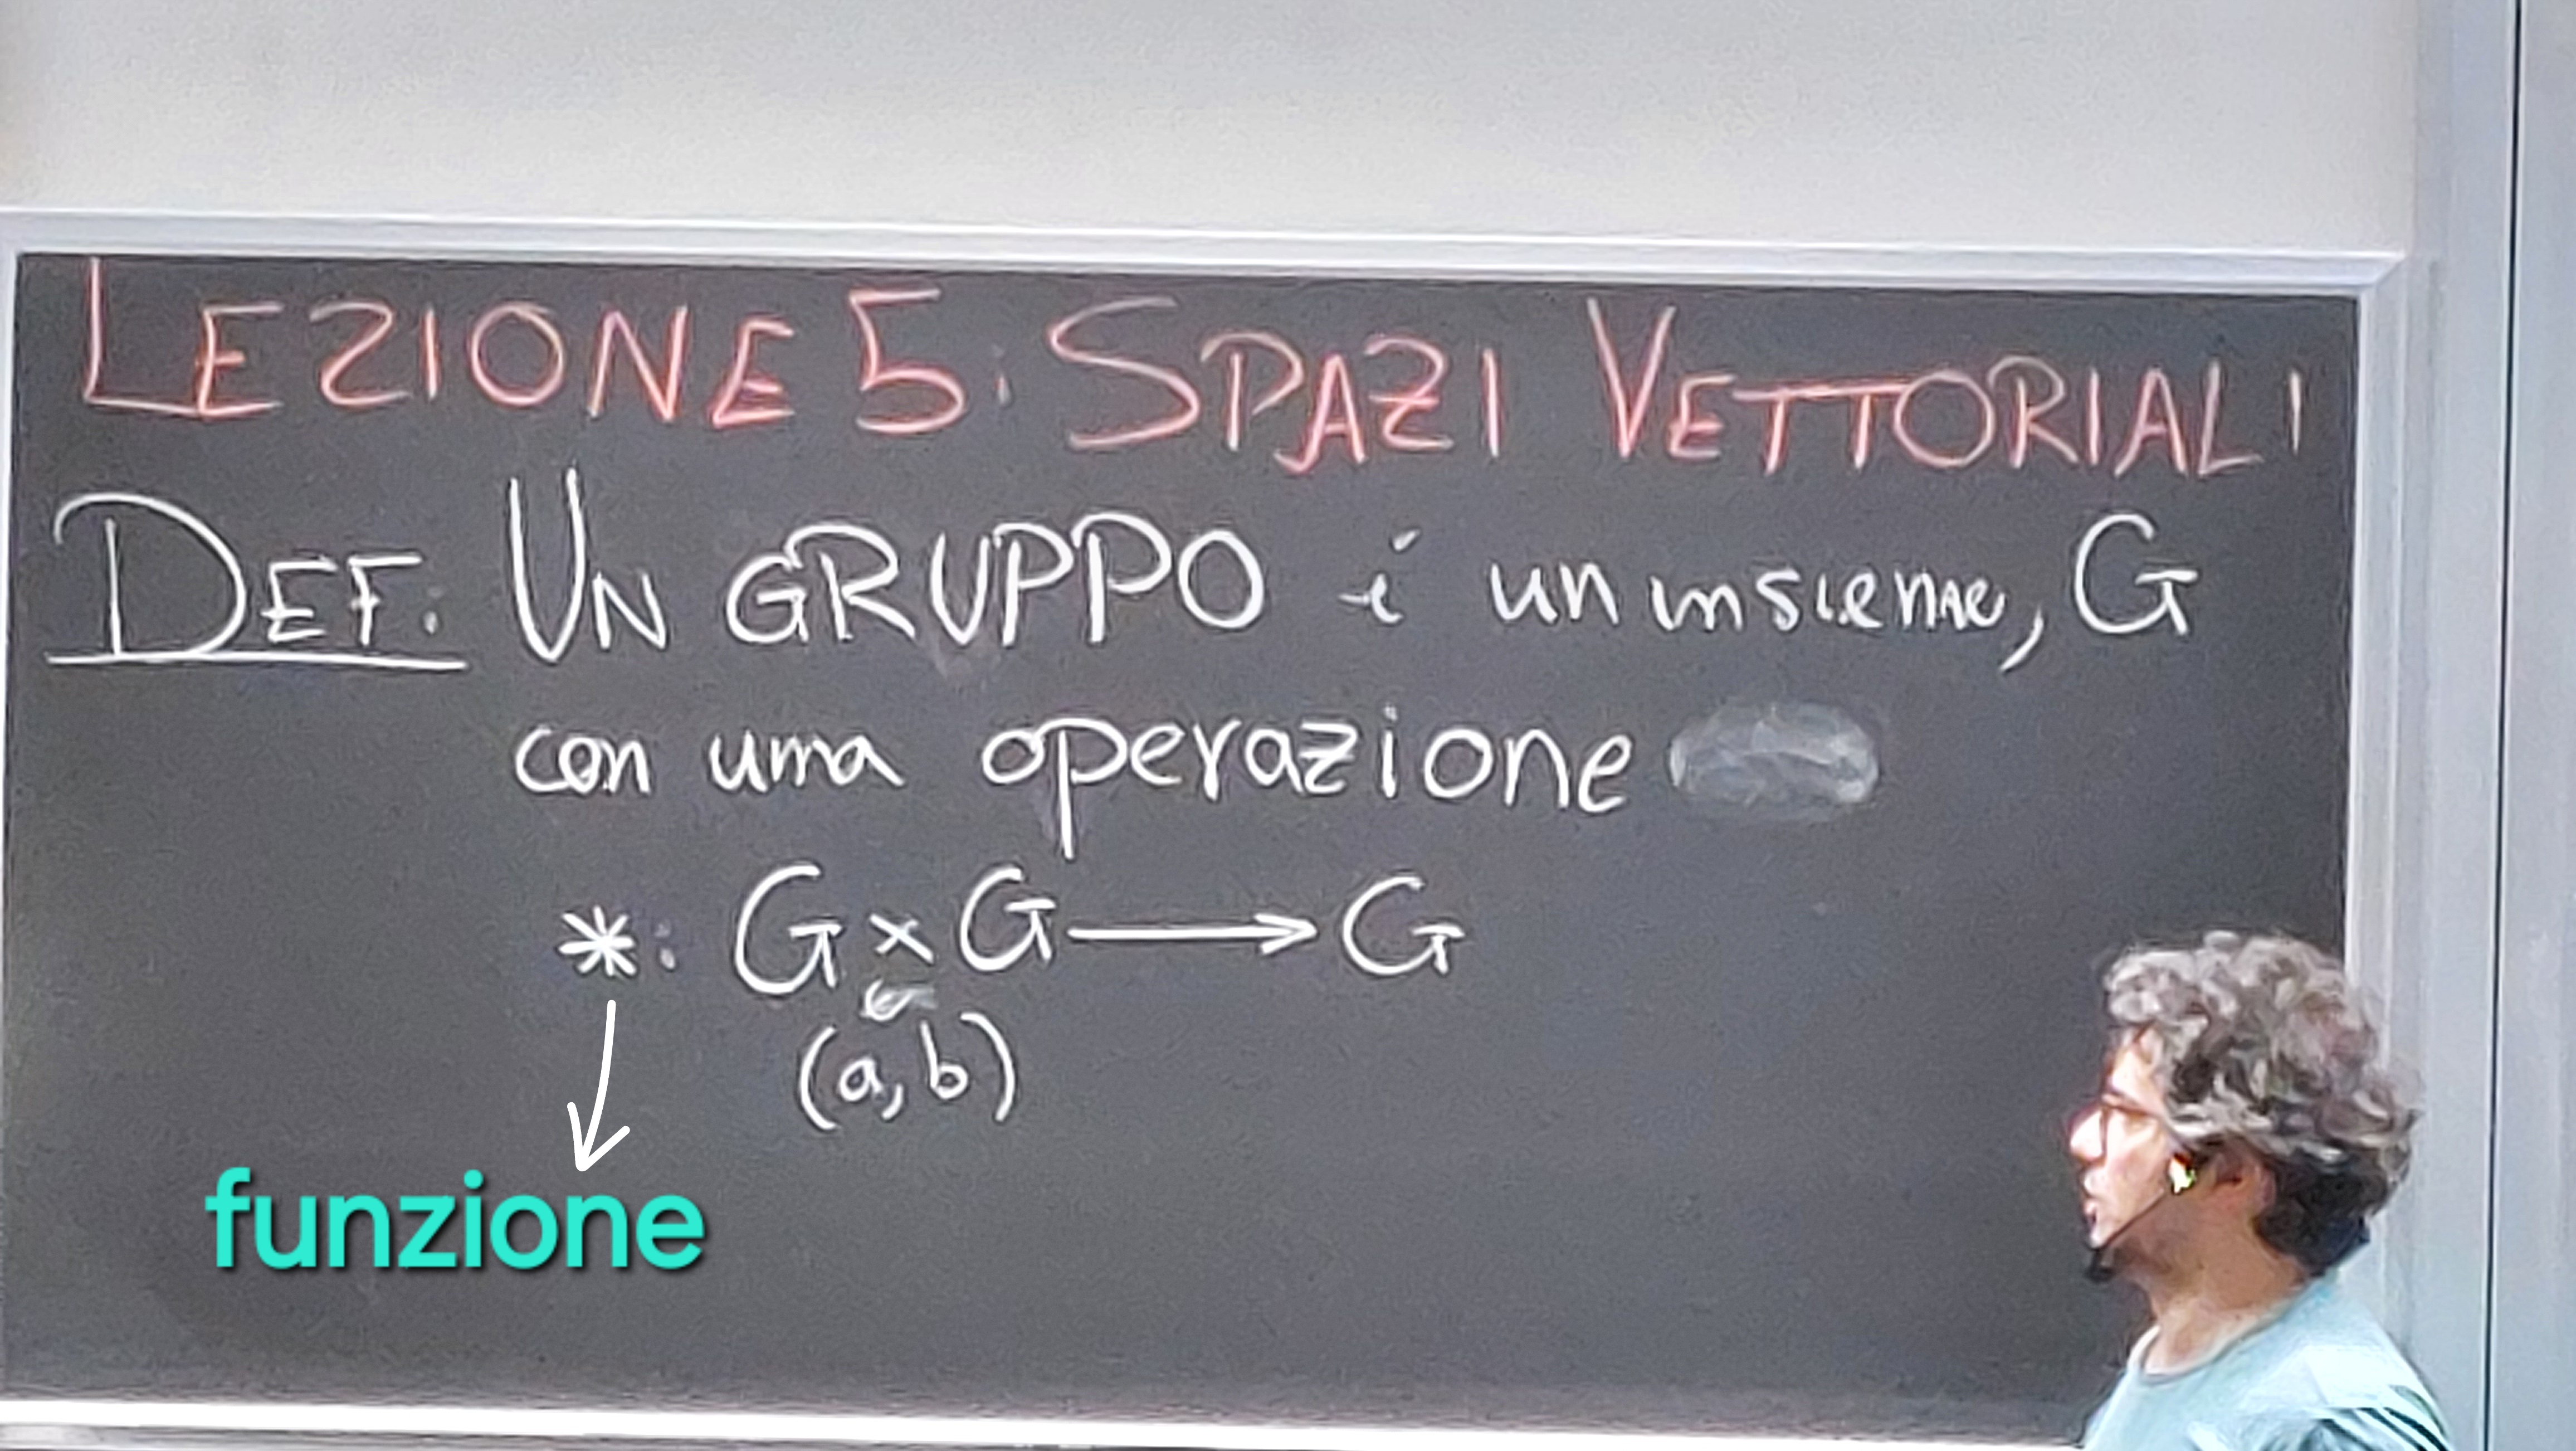 LEZIONE 5: SPAZI VETTORIALI
DEF: UN GRUPPO è un insieme, G
con una operazione
*: G × G → G
(a, b)
funzione